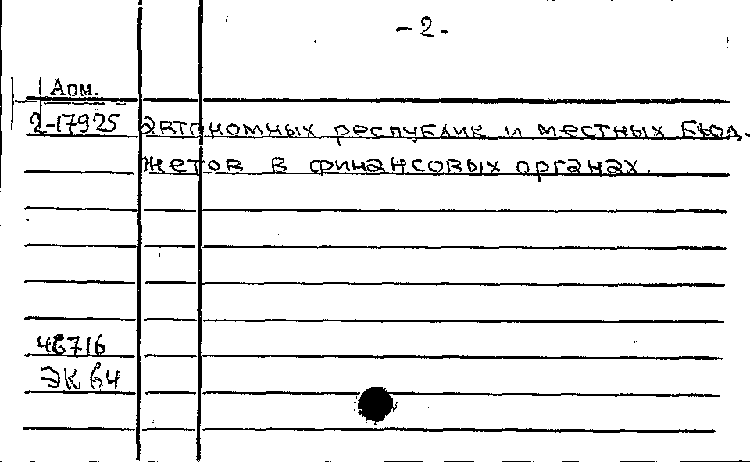 - 2 -
Апм.
2-17925 автономных республик и местных бюд-
жетов в финансовых органах.
46716
ЭК 64